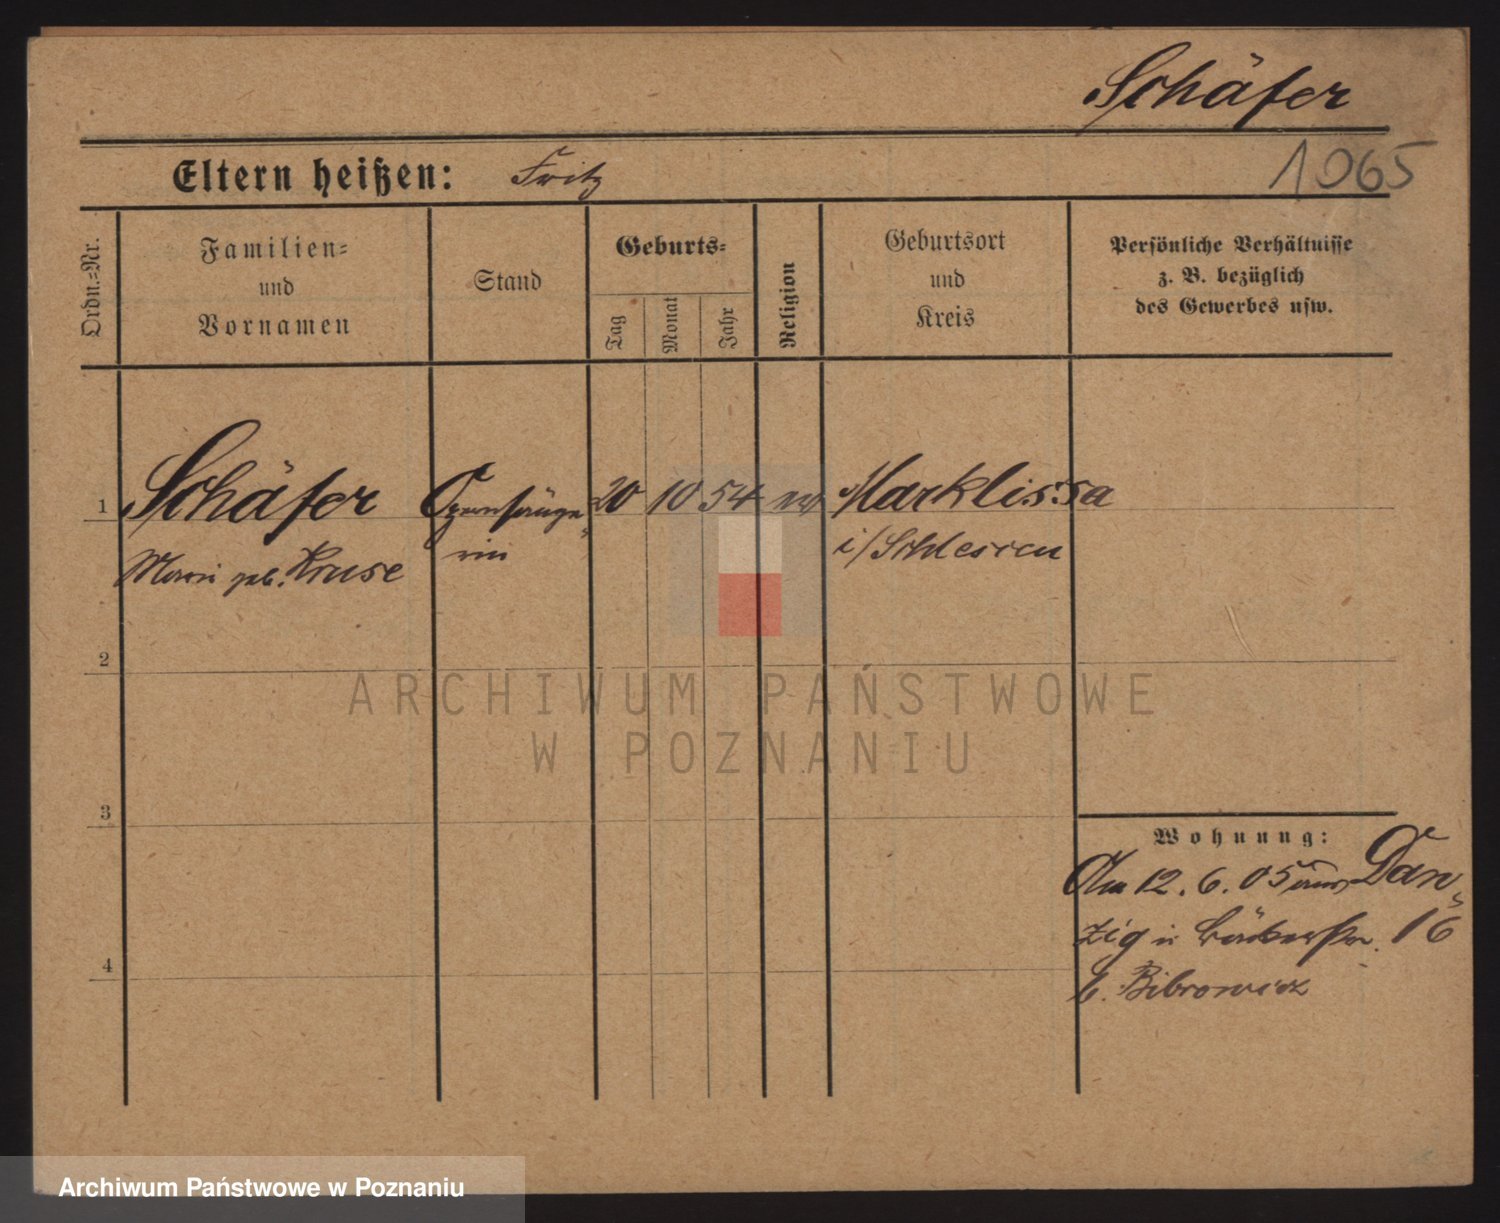 Schäfer
Eltern heißen: Fritz
1065
Ordn.-Nr.
Familien-
und
Vornamen
Stand
Geburts-
Tag
Monat
Jahr
Religion
Geburtsort
und
Kreis
Persönliche Verhältnisse
z. B. bezüglich
des Gewerbes usw.
1 Schäfer Opernsänge- 20 10 54 ev Marklissa
Marie geb. Kruse rin i/Schlesien
2
3
4
Wohnung:
Am 12. 6. 05 aus Dan-
zig n Bäckerstr. 16
b. Bibrowicz
ARCHIWUM PAŃSTWOWE
W POZNANIU
Archiwum Państwowe w Poznaniu